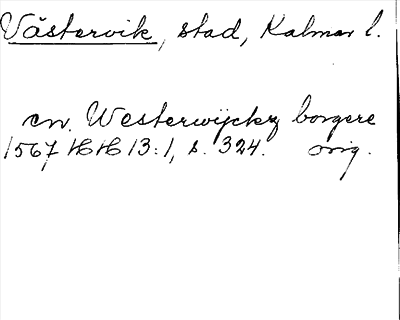 Västervik, stad, Kalmar l.
en. Westerwijckz borgere
1567 HH 13:1, s. 324. orig.